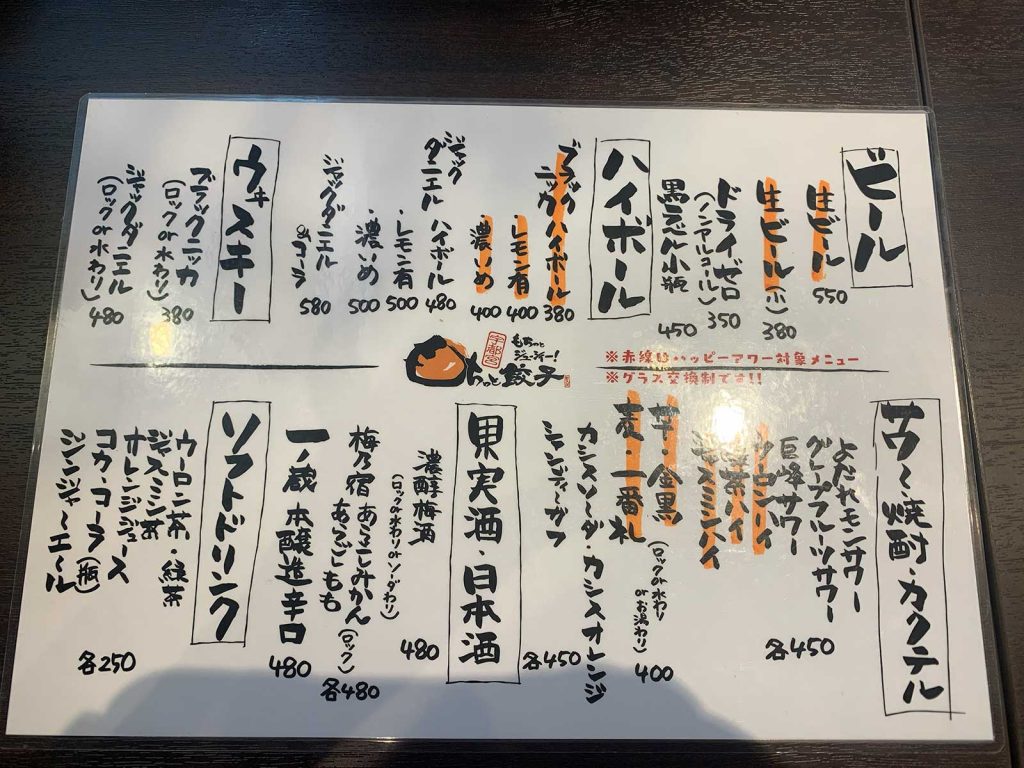 ビール
生ビール 550
生ビール(小) 380
ドライゼロ
(ノンアルコール) 350
黒ラベル小瓶 450
ハイボール
ブラックニッカハイボール 380
・レモン有 400
濃いめ 400
ジャックダニエルハイボール 480
・レモン有 500
・濃いめ 500
ジャックダニエル
&コーラ 580
ウヰスキー
ブラックニッカ
(ロックor水わり) 380
ジャックダニエル
(ロックor水わり) 480
宇都宮
もちっと
ジューシー!
餃子
※赤線はハッピーアワー対象メニュー
※グラス交換制です!!
サワー・焼酎・カクテル
よだれモンサワー
グレープフルーツサワー
巨峰サワー
ウーロンハイ
緑茶ハイ
ジャスミンハイ
各450
芋・金黒
麦・一番札
(ロックor水わり
orお湯わり)
400
カシスソーダ・カシスオレンジ
シャンディーガフ
各450
果実酒・日本酒
濃醇梅酒
(ロックor水わりorソーダわり)
480
梅乃宿 あらごしみかん
あらごしもも (ロック)
各480
一ノ蔵 本醸造辛口
480
ソフトドリンク
ウーロン茶・緑茶
ジャスミン茶
オレンジジュース
コカ・コーラ(瓶)
ジンジャーエール
各250